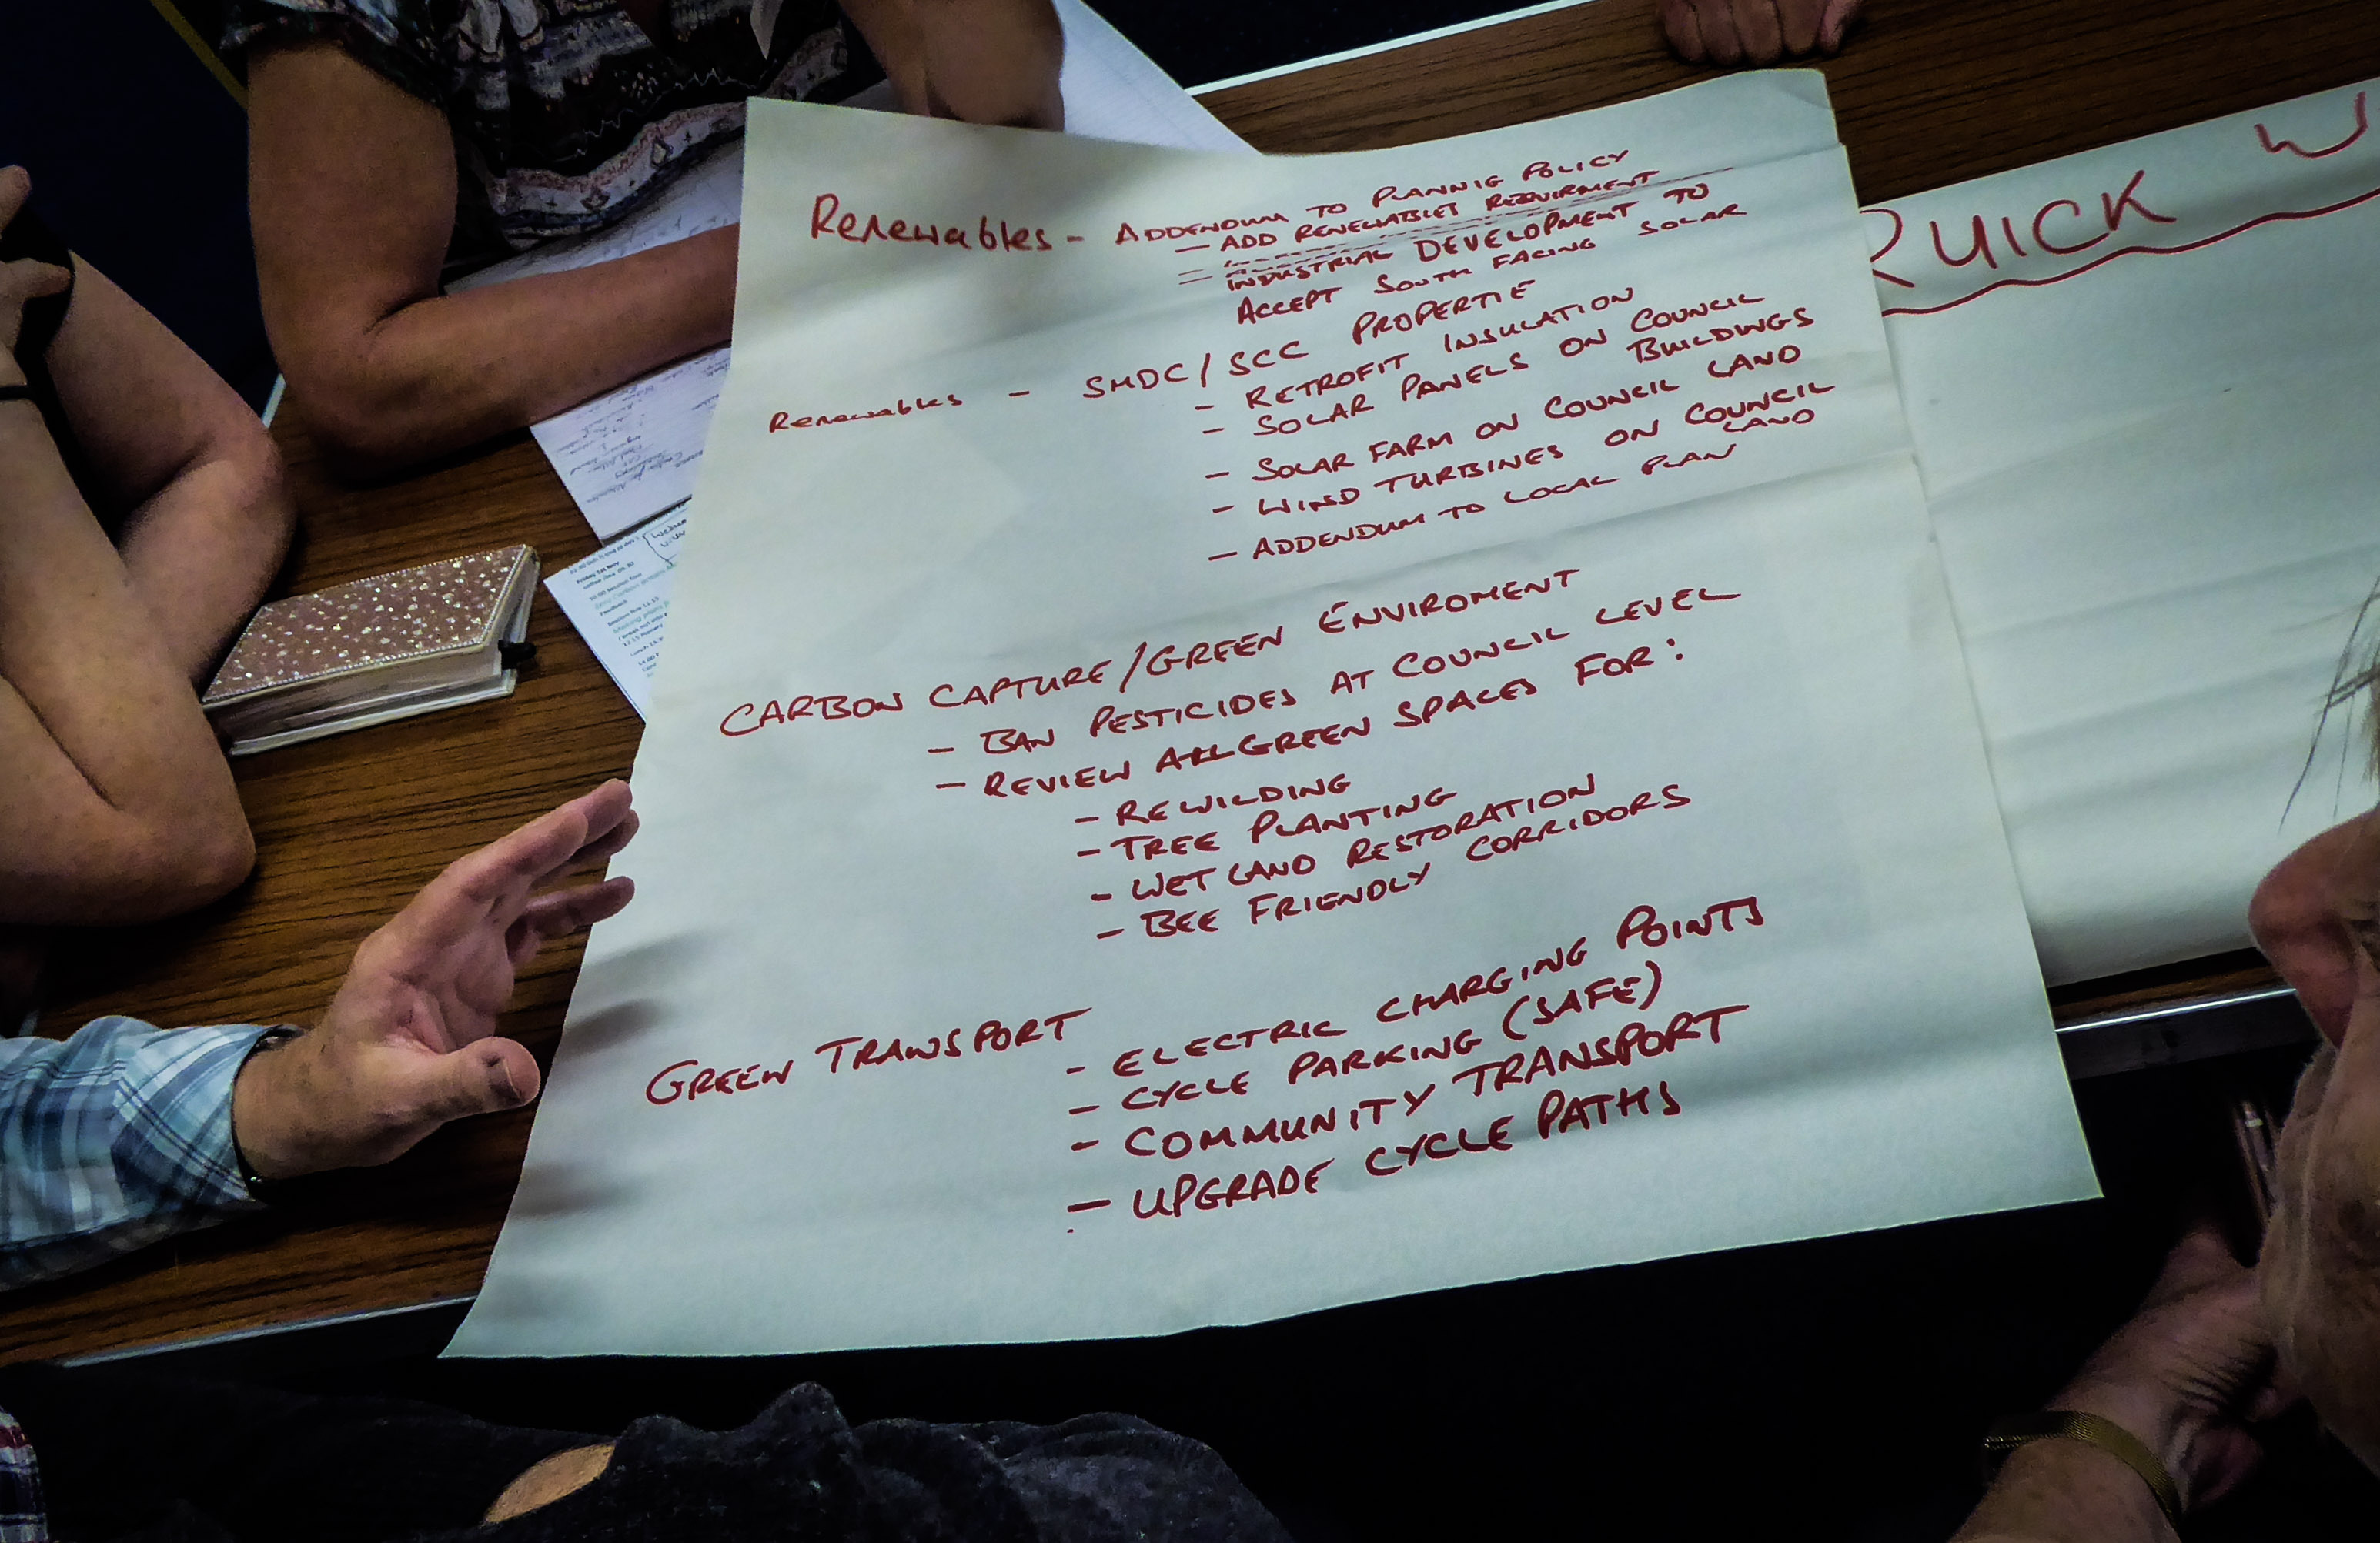 Renewables - ADDENDUM TO PLANNIG POLICY
- ADD RENEWABLES REQUIRMENT
- INDUSTRIAL DEVELOPMENT TO
ACCEPT SOUTH FACING SOLAR
Renewables - SMDC/SCC PROPERTIE
- RETROFIT INSULATION
- SOLAR PANELS ON COUNCIL
BUILDINGS
- SOLAR FARM ON COUNCIL LAND
- WIND TURBINES ON COUNCIL
LAND
- ADDENDUM TO LOCAL PLAN
CARBON CAPTURE/GREEN ENVIROMENT
- BAN PESTICIDES AT COUNCIL LEVEL
- REVIEW ALL GREEN SPACES FOR:
- REWILDING
- TREE PLANTING
- WETLAND RESTORATION
- BEE FRIENDLY CORRIDORS
GREEN TRANSPORT
- ELECTRIC CHARGING POINTS
- CYCLE PARKING (SAFE)
- COMMUNITY TRANSPORT
- UPGRADE CYCLE PATHS
QUICK W
Friday 1st Nov
Feedback